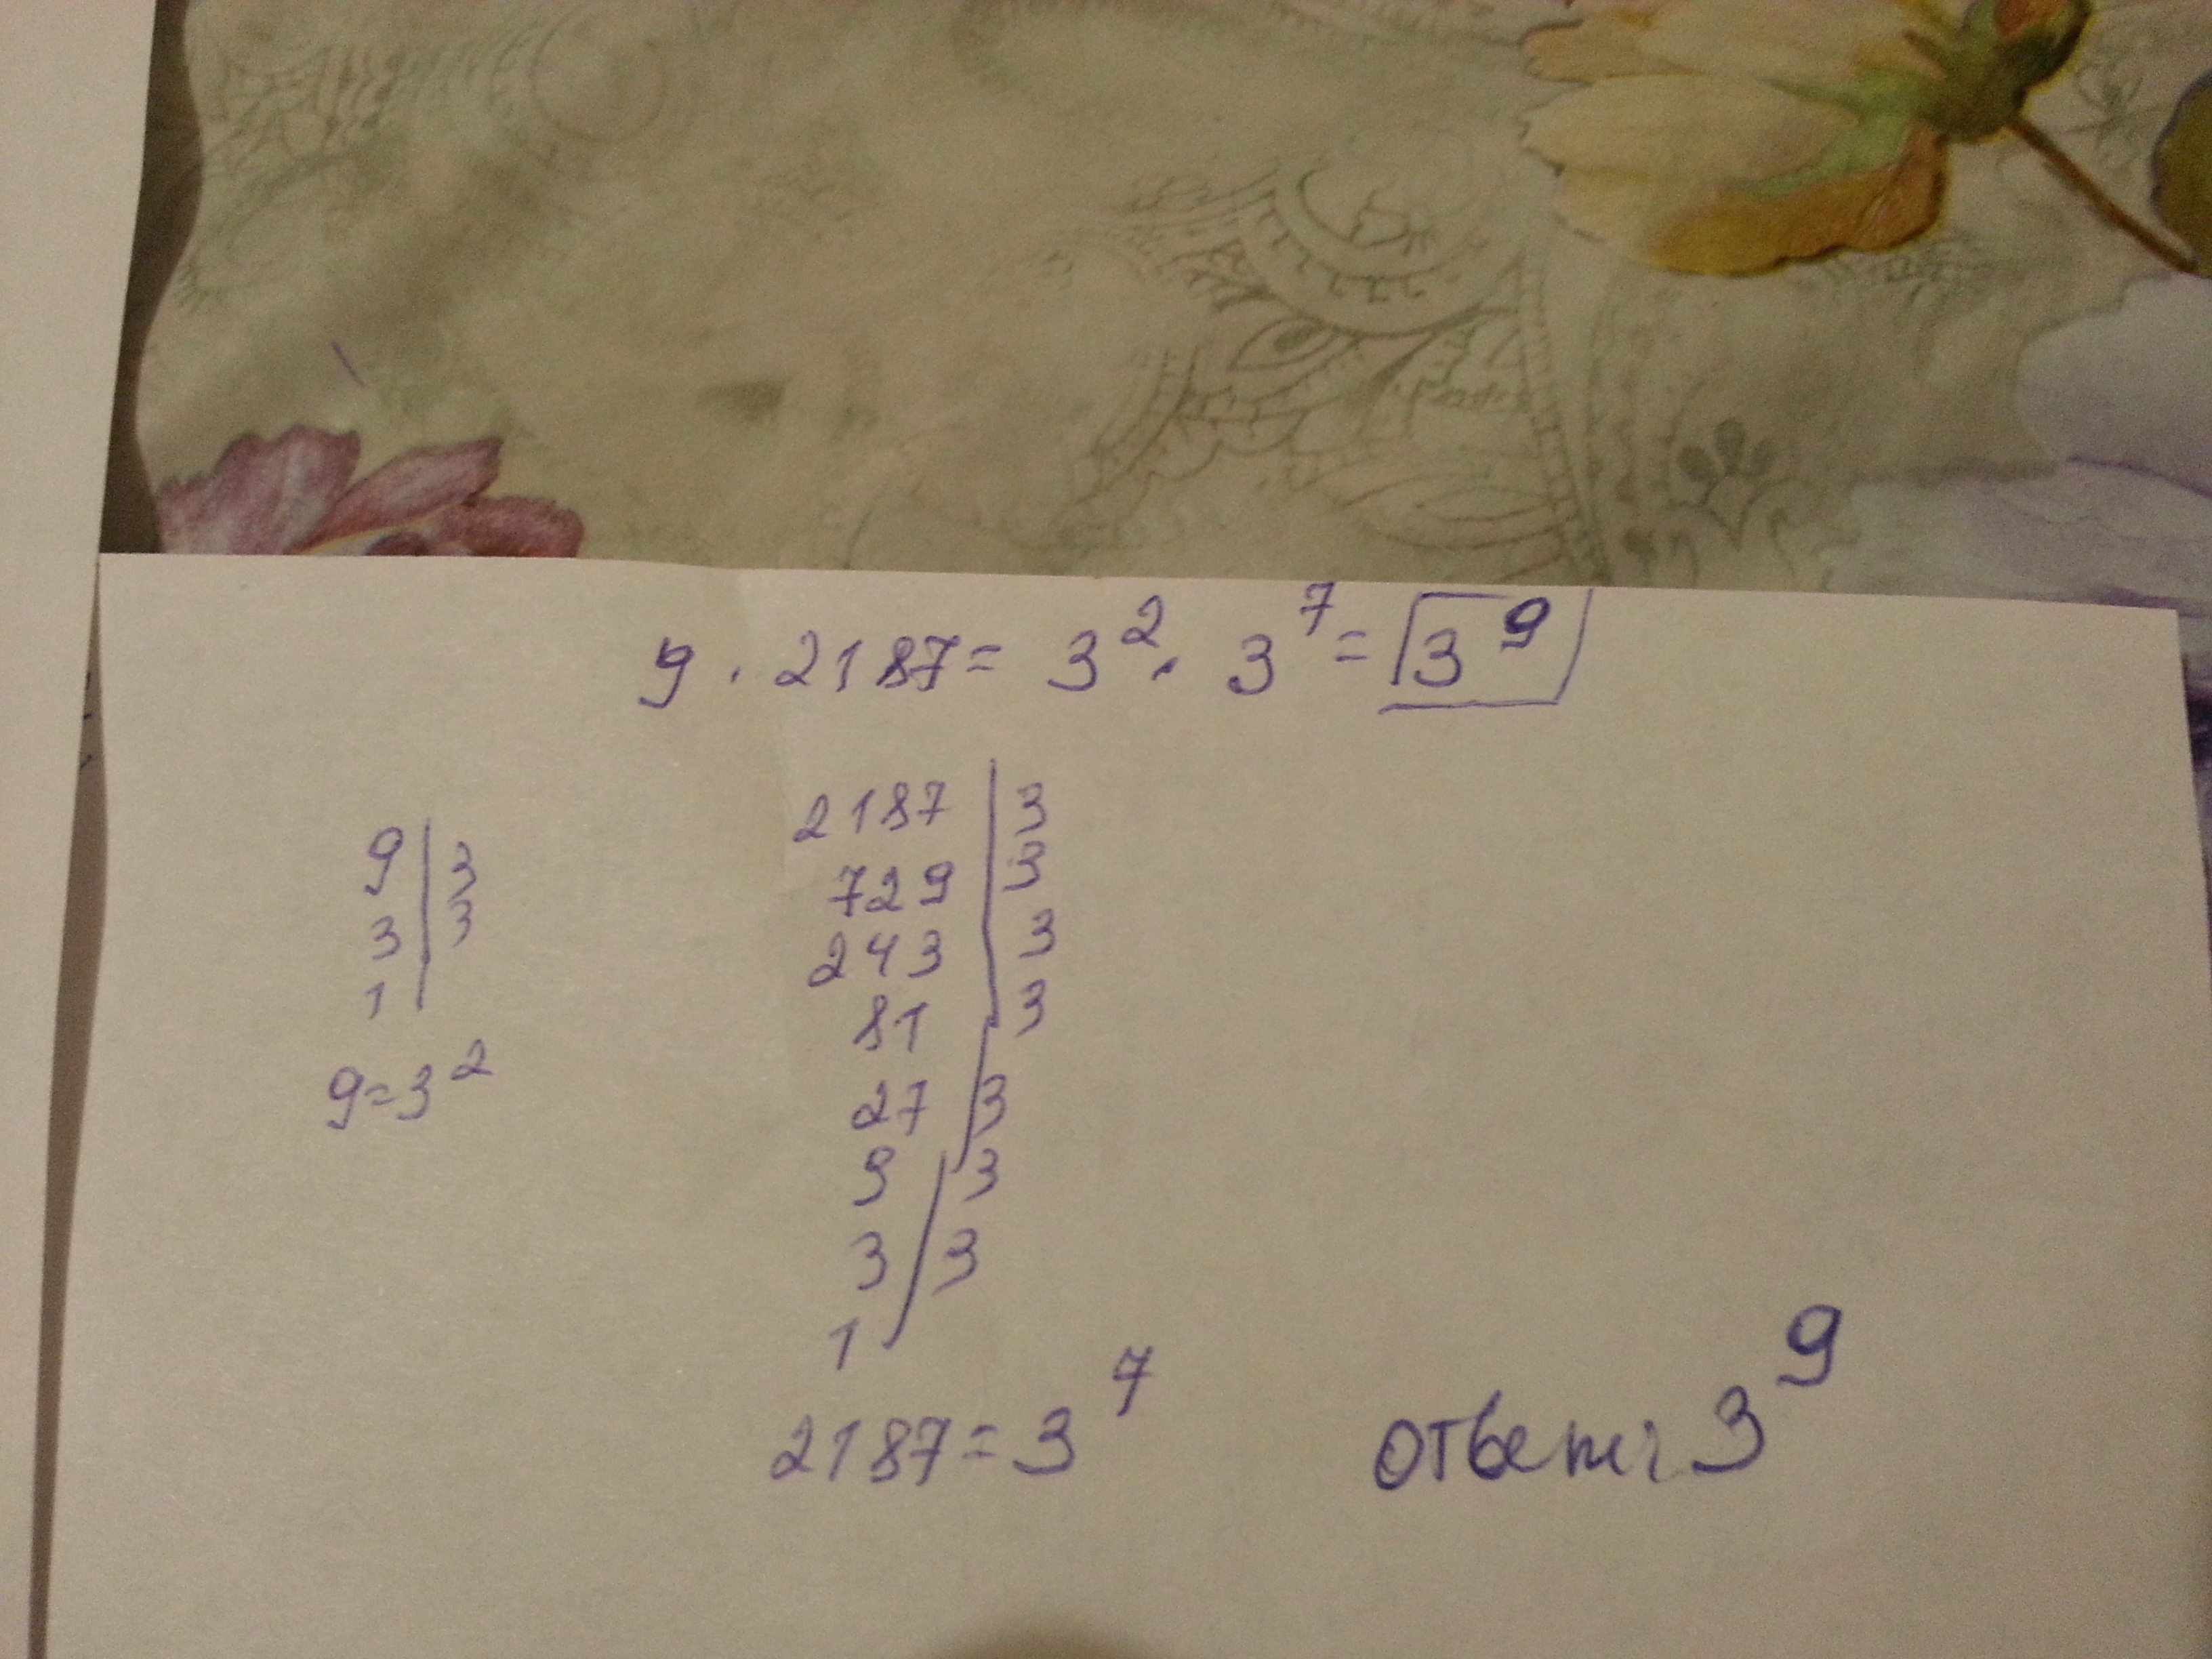 9 · 2187 = 3² · 3⁷ = 3⁹
9 | 3
3 | 3
1 |
9 = 3²
2187 | 3
729 | 3
243 | 3
81 | 3
27 | 3
9 | 3
3 | 3
1 |
2187 = 3⁷
ответ: 3⁹